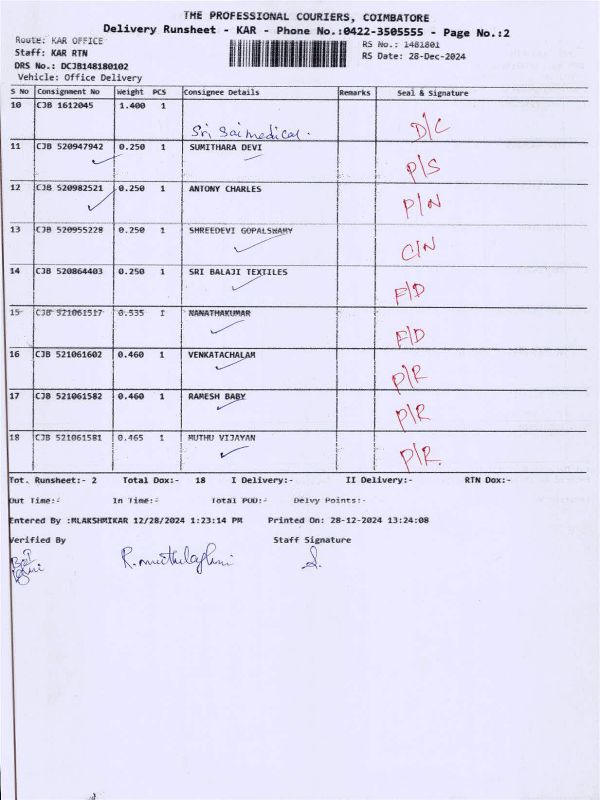 THE PROFESSIONAL COURIERS, COIMBATORE
Delivery Runsheet - KAR - Phone No.:0422-3505555 - Page No.:2
Route: KAR OFFICE
RS No.: 1481801
Staff: KAR RTN
RS Date: 28-Dec-2024
DRS No.: DCJB148180102
Vehicle: Office Delivery
S No Consignment No Weight PCS Consignee Details Remarks Seal & Signature
10 CJB 1612045 1.400 1 Sri Sai medical. D/C
11 CJB 520947942 0.250 1 SUMITHARA DEVI P/S
12 CJB 520982521 0.250 1 ANTONY CHARLES P/N
13 CJB 520955228 0.250 1 SHREEDEVI GOPALSWAMY C/N
14 CJB 520864403 0.250 1 SRI BALAJI TEXTILES F/D
15 CJB 521061517 0.535 1 NANATHAKUMAR F/D
16 CJB 521061602 0.460 1 VENKATACHALAM P/R
17 CJB 521061582 0.460 1 RAMESH BABY P/R
18 CJB 521061581 0.465 1 MUTHU VIJAYAN P/R.
Tot. Runsheet:- 2 Total Dox:- 18 I Delivery:- II Delivery:- RTN Dox:-
Out Time:- In Time:- Total POD:- Delvy Points:-
Entered By :MLAKSHMIKAR 12/28/2024 1:23:14 PM Printed On: 28-12-2024 13:24:08
Verified By Staff Signature